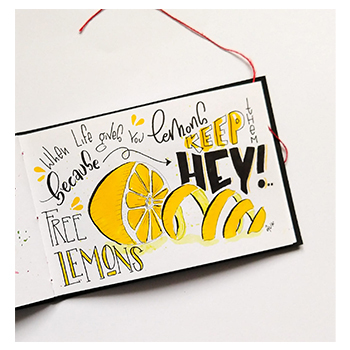 When Life gives You lemons
KEEP
them
because
HEY!..
FREE
LEMONS